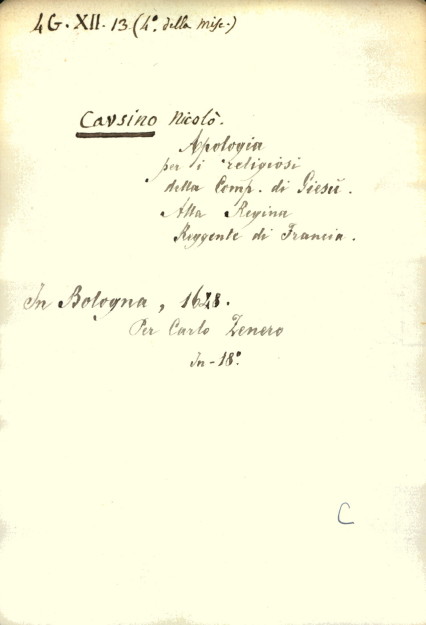 4G. XII. 13. (4º della misc.)
Causino Nicolò.
Apologia
per i religiosi
della Comp. di Giesù.
Alla Regina
Reggente di Francia.
In Bologna, 1628.
Per Carlo Zenero
In-18º.
C